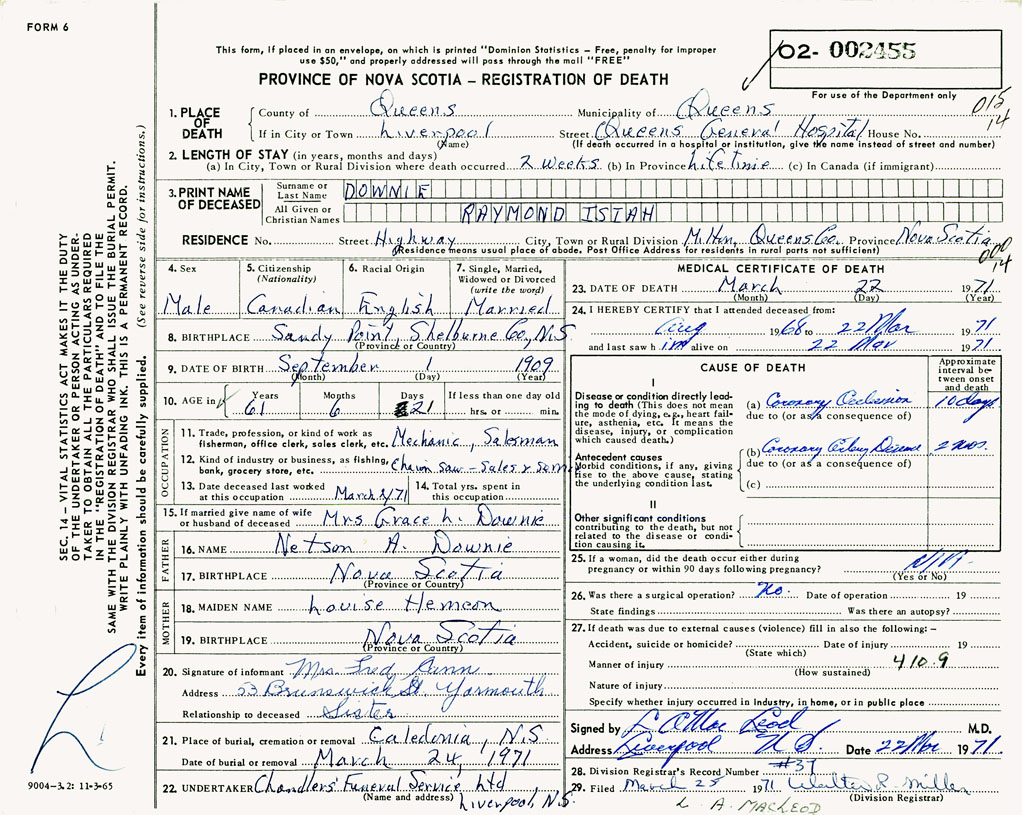 FORM 6
This form, if placed in an envelope, on which is printed "Dominion Statistics – Free, penalty for improper
use $50," and properly addressed will pass through the mail "FREE"
PROVINCE OF NOVA SCOTIA – REGISTRATION OF DEATH
02- 002455
For use of the Department only
015
14
1. PLACE OF DEATH
County of Queens Municipality of Queens
If in City or Town Liverpool Street Queens General Hospital House No.
(Name) (If death occurred in a hospital or institution, give the name instead of street and number)
2. LENGTH OF STAY (in years, months and days)
(a) In City, Town or Rural Division where death occurred 2 weeks (b) In Province Lifetime (c) In Canada (if immigrant)
3. PRINT NAME OF DECEASED
Surname or Last Name DOWNIE
All Given or Christian Names RAYMOND ISTAH
RESIDENCE No. Street Highway City, Town or Rural Division Milton, Queens Co. Province Nova Scotia
(Residence means usual place of abode. Post Office Address for residents in rural parts not sufficient)
000
14
4. Sex Male
5. Citizenship (Nationality) Canadian
6. Racial Origin English
7. Single, Married, Widowed or Divorced (write the word) Married
8. BIRTHPLACE Sandy Point, Shelburne Co., N.S.
(Province or Country)
9. DATE OF BIRTH September 1 1909
(Month) (Day) (Year)
10. AGE in Years 61 Months 6 Days 21 If less than one day old hrs. or min.
OCCUPATION
11. Trade, profession, or kind of work as
fisherman, office clerk, sales clerk, etc. Mechanic, Salsman
12. Kind of industry or business, as fishing,
bank, grocery store, etc. Chain Saw – Sales &
13. Date deceased last worked
at this occupation March 8/71
14. Total yrs. spent in
this occupation
15. If married give name of wife
or husband of deceased Mrs Grace L. Downie
FATHER
16. NAME Netson A. Downie
17. BIRTHPLACE Nova Scotia
(Province or Country)
MOTHER
18. MAIDEN NAME Louise Hemeon
19. BIRTHPLACE Nova Scotia
(Province or Country)
20. Signature of informant Mrs. Fred
Address 53 Brunswick St. Yarmouth
Relationship to deceased Sister
21. Place of burial, cremation or removal Caledonia, N.S.
Date of burial or removal March 24, 1971
22. UNDERTAKER Chandlers Funeral Service Ltd
(Name and address) Liverpool, N.S.
MEDICAL CERTIFICATE OF DEATH
23. DATE OF DEATH March 22 1971
(Month) (Day) (Year)
24. I HEREBY CERTIFY that I attended deceased from:
Aug 1968 to 22 Mar 1971
and last saw him alive on 22 Mar 1971
CAUSE OF DEATH
Approximate interval between onset and death
I
Disease or condition directly leading to death (This does not mean the mode of dying, e.g., heart failure, asthenia, etc. It means the disease, injury, or complication which caused death.)
(a) Coronary Occlusion 10 days
due to (or as a consequence of)
Antecedent causes
Morbid conditions, if any, giving rise to the above cause, stating the underlying condition last.
(b) Coronary Artery Disease 2 mos.
due to (or as a consequence of)
(c)
II
Other significant conditions
contributing to the death, but not related to the disease or condition causing it.
25. If a woman, did the death occur either during
pregnancy or within 90 days following pregnancy?
(Yes or No)
26. Was there a surgical operation? no. Date of operation 19
State findings Was there an autopsy?
27. If death was due to external causes (violence) fill in also the following: –
Accident, suicide or homicide? Date of injury 19
(State which)
Manner of injury 410.9
(How sustained)
Nature of injury
Specify whether injury occurred in industry, in home, or in public place
Signed by L A Mac Leod M.D.
Address Liverpool N S. Date 22 Mar 1971
28. Division Registrar's Record Number #37
29. Filed March 25 1971 Walter R. Miller
(Division Registrar)
L. A. MACLEOD
SEC. 14 – VITAL STATISTICS ACT MAKES IT THE DUTY
OF THE UNDERTAKER OR PERSON ACTING AS UNDER-
TAKER TO OBTAIN ALL THE PARTICULARS REQUIRED
IN THE "REGISTRATION OF DEATH" AND TO FILE THE
SAME WITH THE DIVISION REGISTRAR WHO SHALL ISSUE THE BURIAL PERMIT.
WRITE PLAINLY WITH UNFADING INK. THIS IS A PERMANENT RECORD.
Every item of information should be carefully supplied. (See reverse side for instructions.)
9004-3.2: 11-3-65